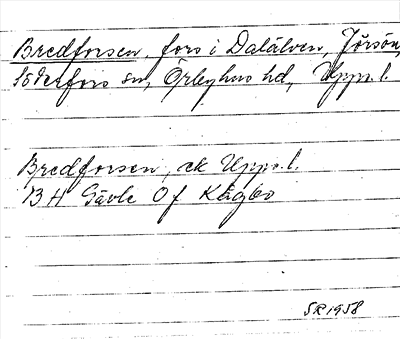 Bredforsen, fors i Dalälven, Jörsön,
Söderfors sn, Örbyhus hd, Uppl.
Bredforsen, ek Uppl.
13 H Gävle 0f Kågbo
SR 1958